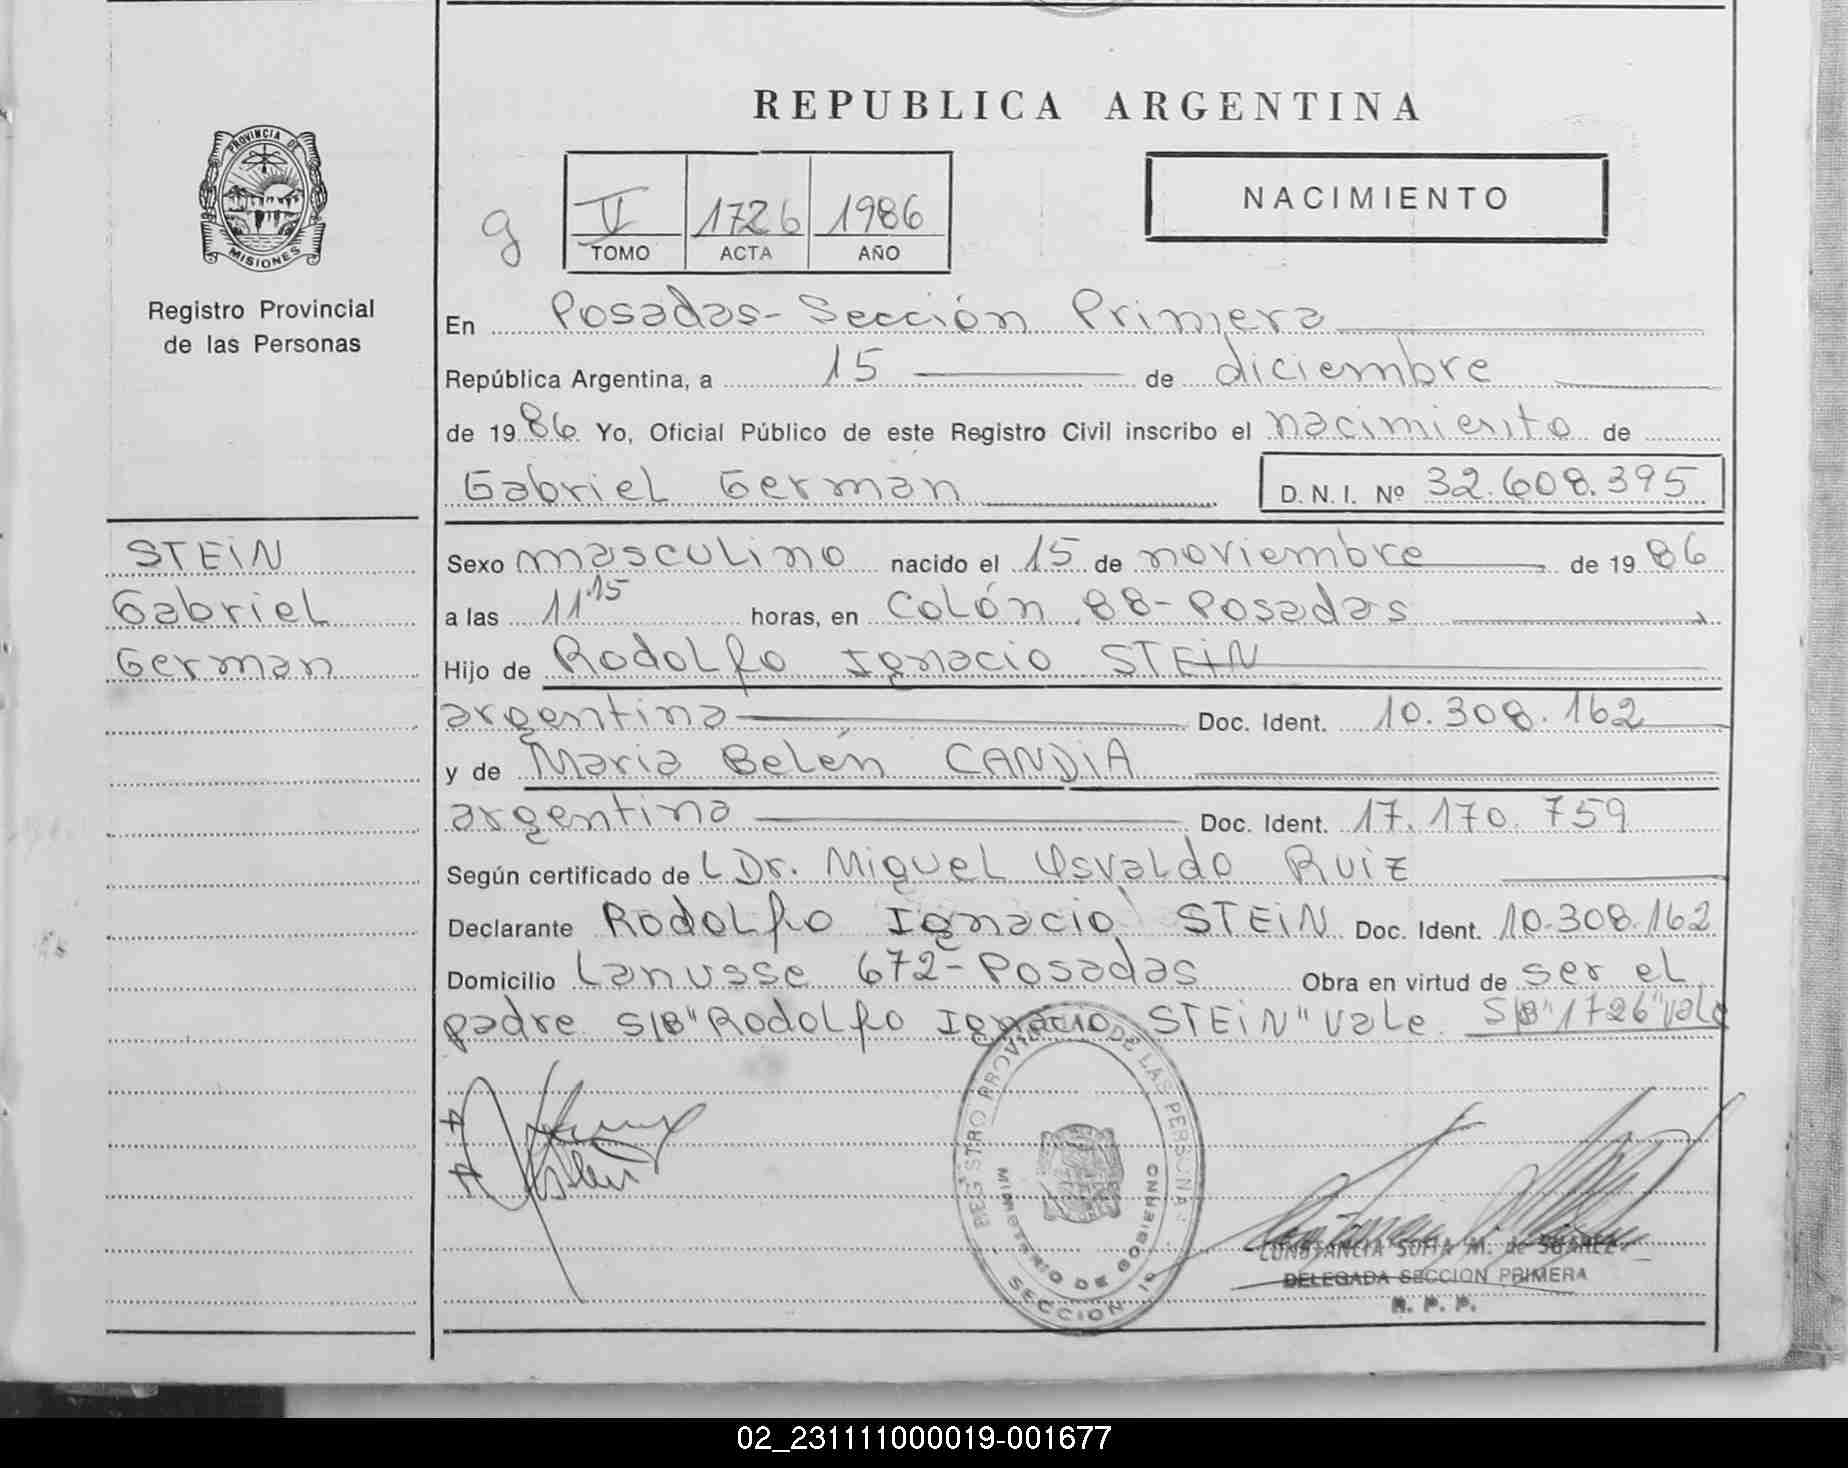 REPUBLICA ARGENTINA
PROVINCIA DE
MISIONES
Registro Provincial
de las Personas
NACIMIENTO
g
V 1726 1986
TOMO ACTA AÑO
En Posadas - Sección Primera
República Argentina, a 15 de diciembre
de 1986 Yo, Oficial Público de este Registro Civil inscribo el nacimiento de
Gabriel German D.N.I. Nº 32.608.395
STEIN
Gabriel
German
Sexo masculino nacido el 15 de noviembre de 1986
a las 11.15 horas, en Colón 88 - Posadas
Hijo de Rodolfo Ignacio STEIN
argentina Doc. Ident. 10.308.162
y de Maria Belén CANDIA
argentina Doc. Ident. 17.170.759
Según certificado de L Dr. Miguel Osvaldo Ruiz
Declarante Rodolfo Ignacio STEIN Doc. Ident. 10.308.162
Domicilio Lanusse 672 - Posadas Obra en virtud de ser el
padre S/B "Rodolfo Ignacio STEIN" Vale S/B "1726" Vale
REGISTRO PROVINCIAL DE LAS PERSONAS
MINISTERIO DE GOBIERNO
SECCION 1º
CONSTANCIA SOFIA M. de SUAREZ
DELEGADA SECCION PRIMERA
R. P. P.
02_231111000019-001677